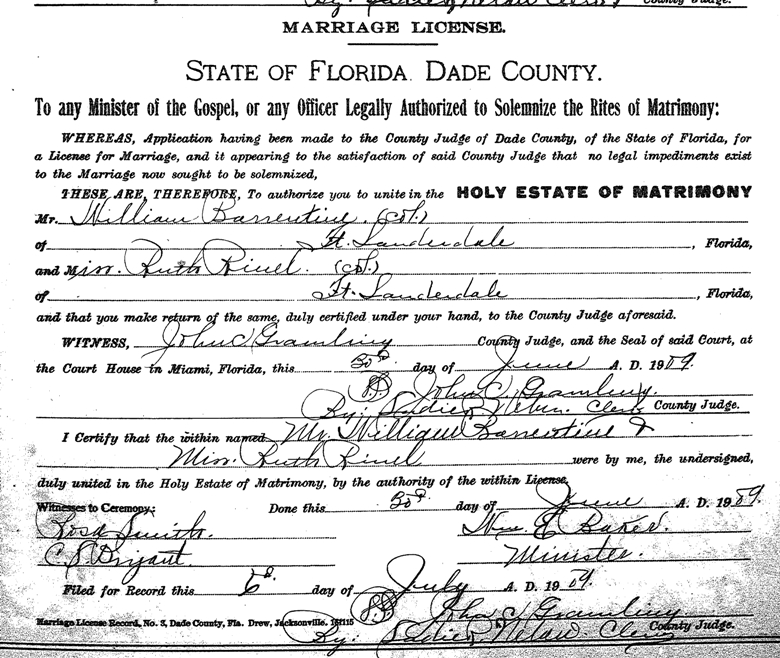 County Judge.
MARRIAGE LICENSE.
STATE OF FLORIDA. DADE COUNTY.
To any Minister of the Gospel, or any Officer Legally Authorized to Solemnize the Rites of Matrimony:
WHEREAS, Application having been made to the County Judge of Dade County, of the State of Florida, for
a License for Marriage, and it appearing to the satisfaction of said County Judge that no legal impediments exist
to the Marriage now sought to be solemnized,
THESE ARE, THEREFORE, To authorize you to unite in the HOLY ESTATE OF MATRIMONY
Mr. William Barrentine. (col.)
of Ft. Lauderdale, Florida,
and Miss. Ruth (col.)
of Ft. Lauderdale, Florida,
and that you make return of the same, duly certified under your hand, to the County Judge aforesaid.
WITNESS, John C Gramling County Judge, and the Seal of said Court, at
the Court House in Miami, Florida, this 30 day of June A. D. 1909.
John C. Gramling.
By: Clerk County Judge.
I Certify that the within named Mr. William Barrentine &
Miss. Ruth were by me, the undersigned,
duly united in the Holy Estate of Matrimony, by the authority of the within License.
Witnesses to Ceremony: Done this 30 day of June A. D. 1909.
Rosa Smith. Wm. E Baker.
C. S. Bryant. Minister.
Filed for Record this 6 day of July A. D. 1909.
John C Gramling
Marriage License Record, No. 3, Dade County, Fla. Drew, Jacksonville. County Judge.
By: Clerk